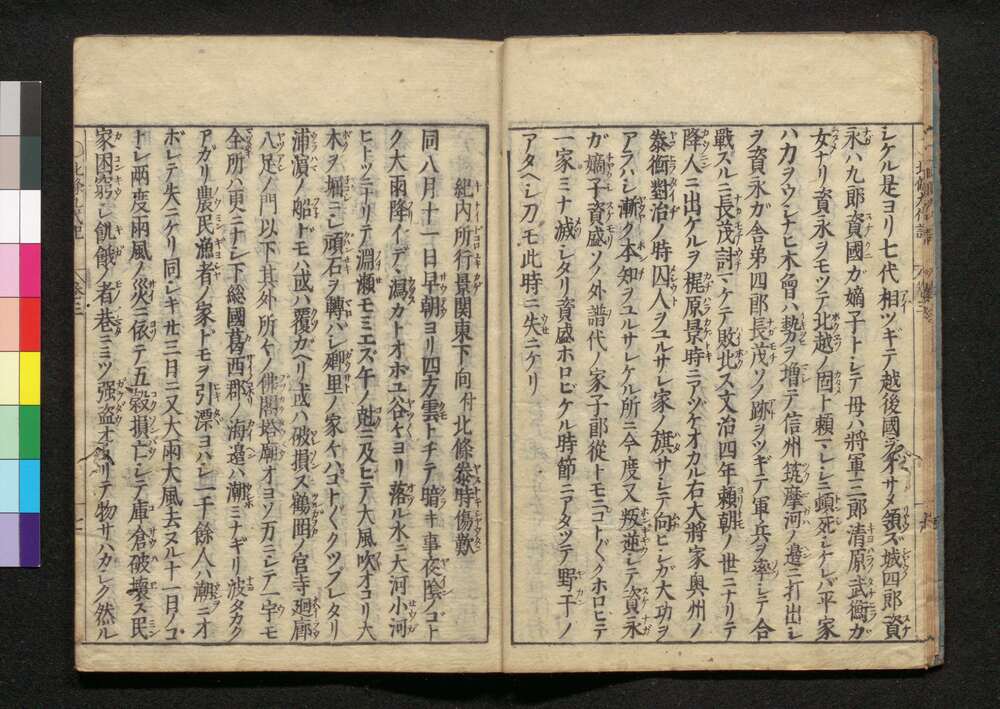 シケル是ヨリ七代相ツギテ越後國ヲオサメ領ズ城四郎資
永ハ九郎資國ガ嫡子トシテ母ハ將軍三郎清原武衡ガ
女ナリ資永ヲモツテ北越ノ固ト頼マレシニ頓死シケレバ平家
ハカヲウシナヒ木曾ハ勢ヲ増テ信州筑摩河ノ邊ニ打出シ
ヲ資永ガ舎弟四郎長茂ソノ跡ヲツギテ軍兵ヲ率シテ合
戰スルニ長茂計マケテ敗北ス文治四年頼朝ノ世ニナリテ
降人ニ出ケルヲ梶原景時ニアヅケオカル右大將家奥州ノ
泰衡對治ノ時囚人ヲユルサレ家ノ旗サシテ向ヒシガ大功ヲ
アラハシ漸ク本知ヲユルサレケル所ニ今度又叛逆シテ資永
ガ嫡子資盛ソノ外譜代ノ家子郎從トモニコトゞクホロビテ
一家ミナ滅シタリ資盛ホロビケル時節ニアタツテ野干ノ
アタヘシ刀モ此時ニ失ニケリ
紀内所行景関東下向付北條泰時傷歎
同八月十一日早朝ヨリ四方雲トチテ暗キ事夜陰ノゴト
ク大雨降イデヽ潟カトオボユ谷々ヨリ落ル水ニ大河小河
ヒトツニナリテ淵瀬モミエズ午ノ尅ニ及ビテ大風吹オコリ大
木ヲ堀ニシ頑石ヲ轉バシ郷里ノ家々バコトゞクツブレタリ
浦濱ノ船トモハ或ハ覆カヘリ或ハ破損ス鶴岡ノ宮寺廻廊
八足ノ門以下其外所々ノ佛閣塔廟オヨソ万ニシテ一宇モ
全所ハ更ニナシ下総國葛西郡ノ海邉ハ潮ミナギリ波タカク
アガリ農民漁者ノ家トモヲ引漂ヨハシ一千餘人ハ潮ニオ
ボレテ失ニケリ同シキ廿三日ニ又大雨大風去ヌル十一日ノゴ
トシ兩度兩風ノ災ニ依テ五穀損亡シテ庫倉破壊ス民
家困窮シ飢餓ノ者巷ニミツ强盗オコリテ物サハガシク然ル